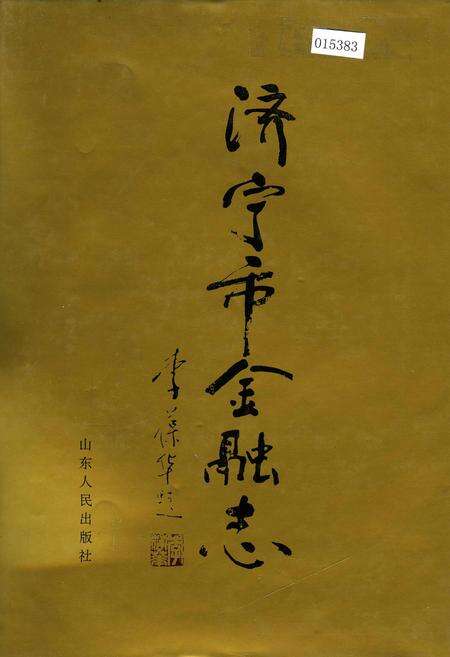 015383
济宁市金融志
李葆华题
山东人民出版社